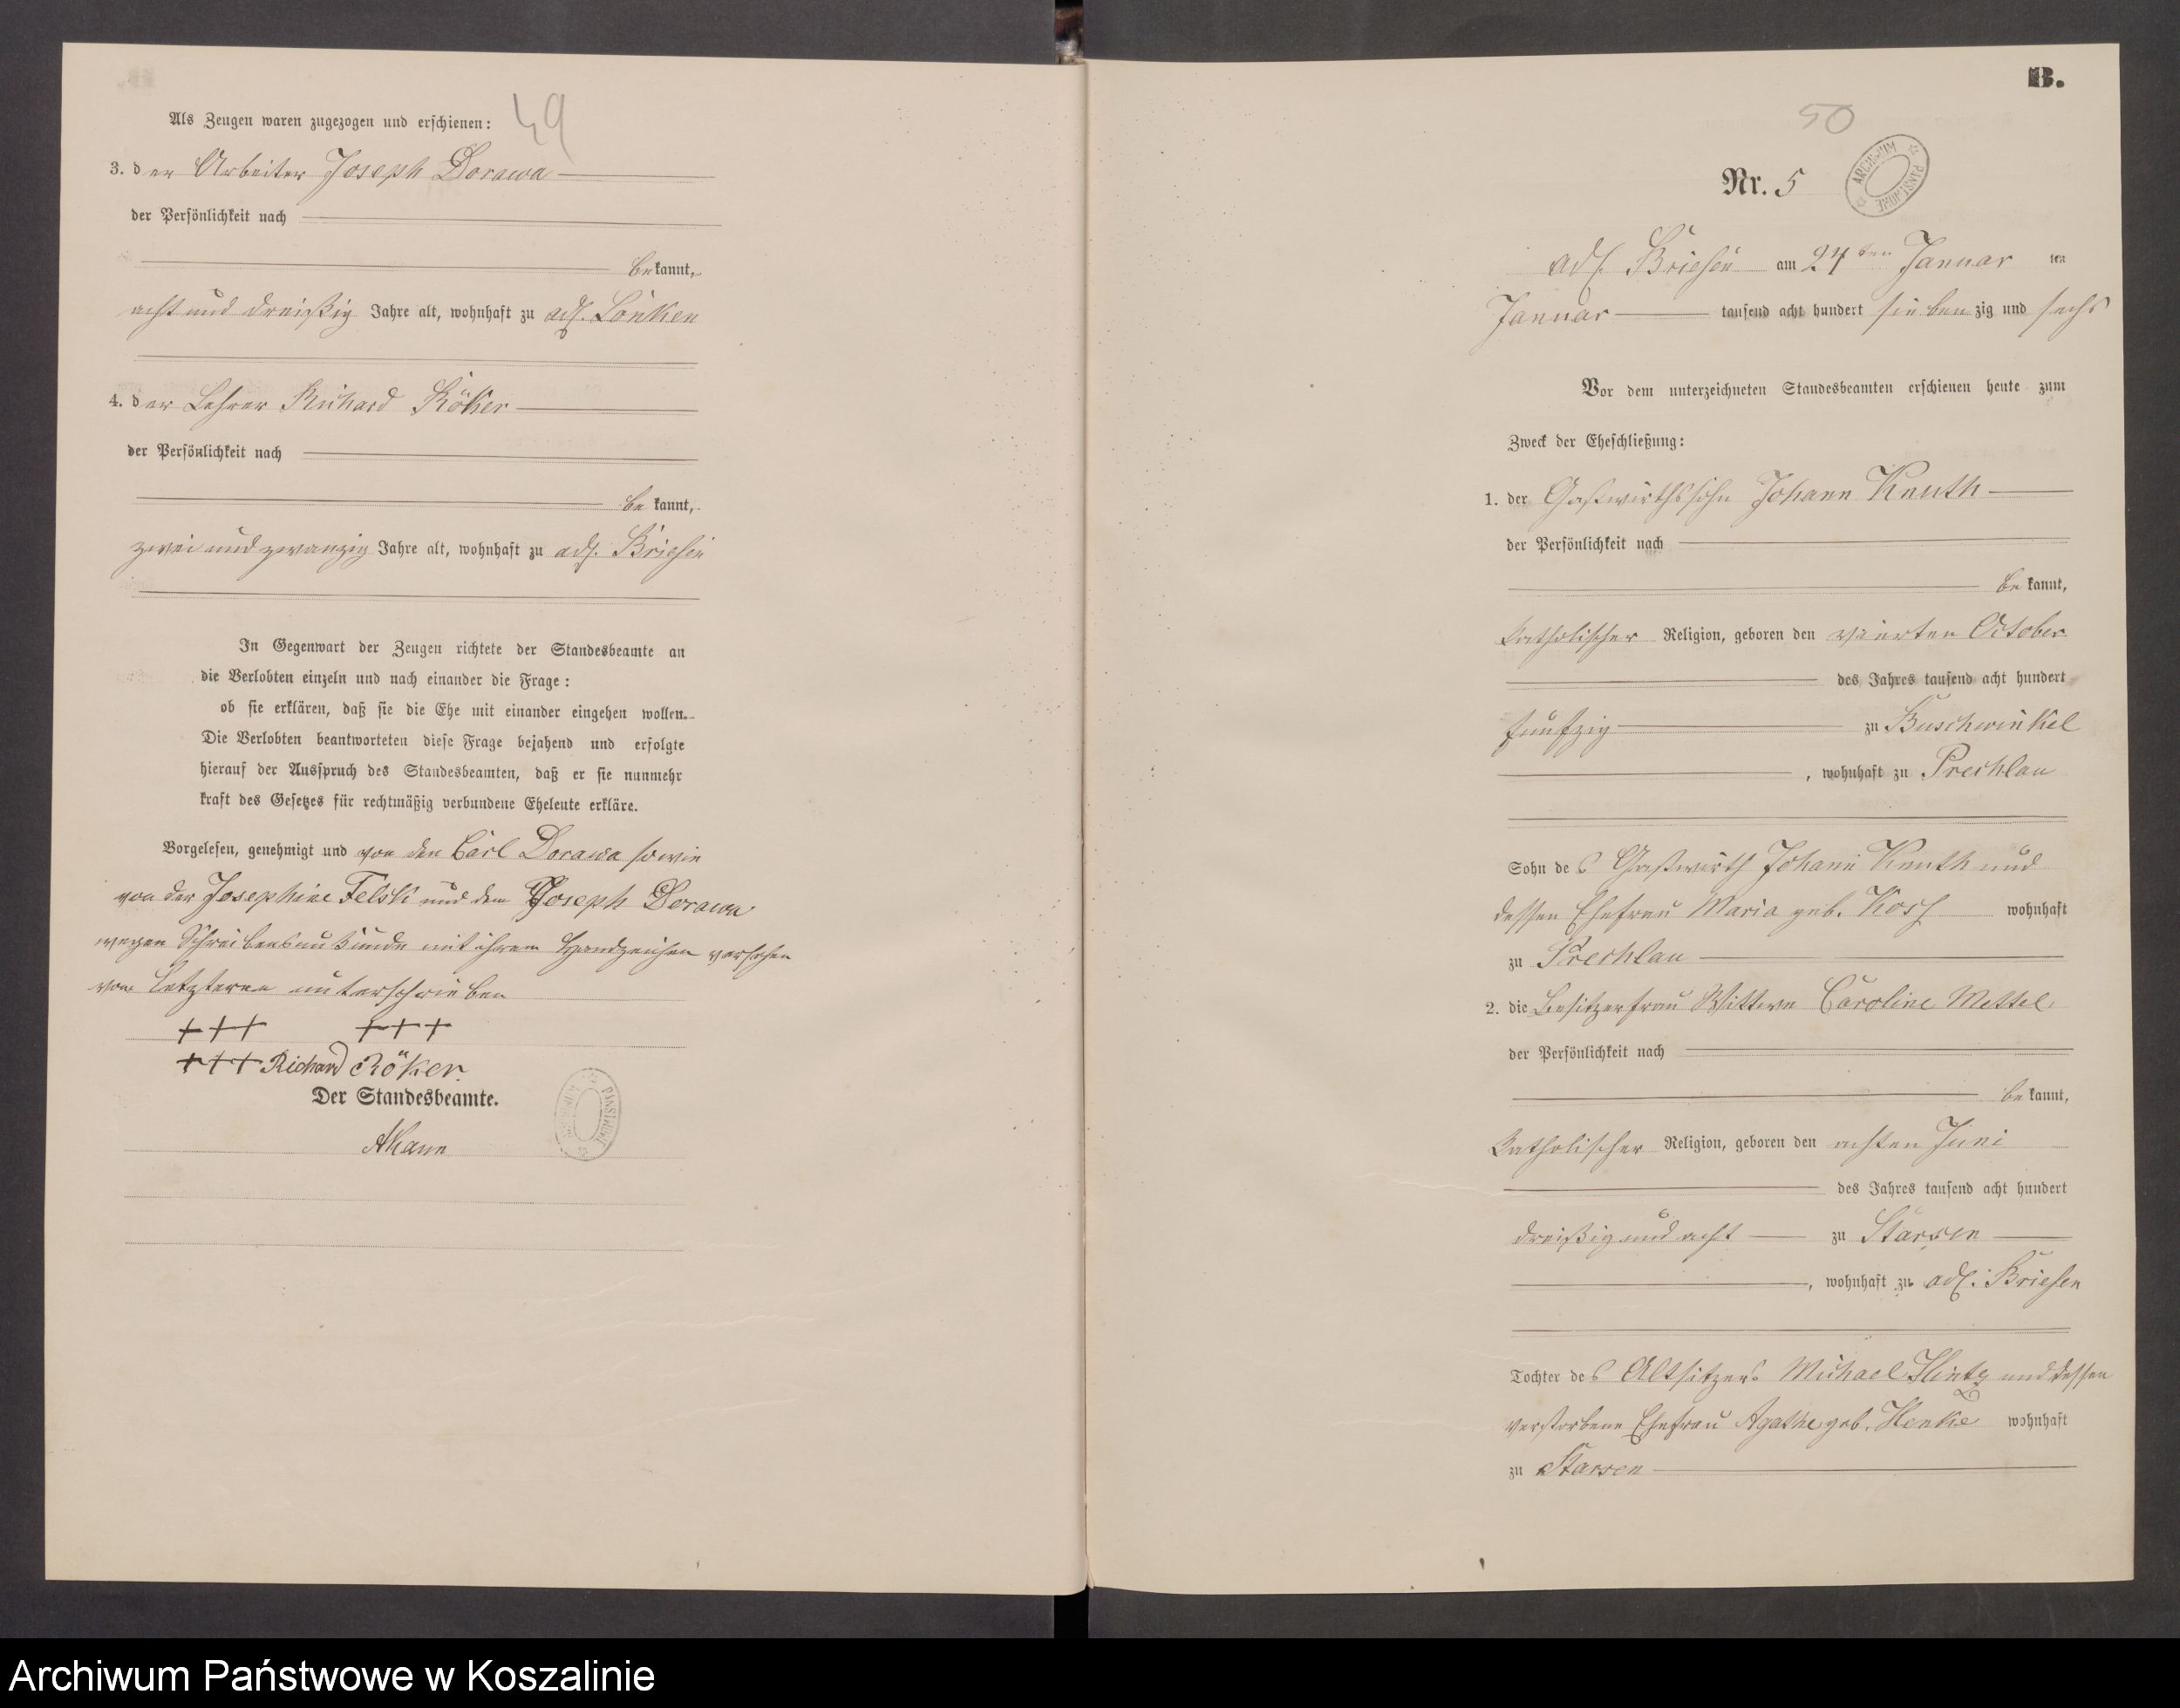 49
Als Zeugen waren zugezogen und erschienen:
3. der Arbeiter Joseph Dorawa
der Persönlichkeit nach
bekannt,
acht und dreißig Jahre alt, wohnhaft zu adl. Lonken
4. der Lehrer Richard Röker
der Persönlichkeit nach
bekannt,
zwei und zwanzig Jahre alt, wohnhaft zu adl. Briesen
In Gegenwart der Zeugen richtete der Standesbeamte an
die Verlobten einzeln und nach einander die Frage:
ob sie erklären, daß sie die Ehe mit einander eingehen wollen.
Die Verlobten beantworteten diese Frage bejahend und erfolgte
hierauf der Ausspruch des Standesbeamten, daß er sie nunmehr
kraft des Gesetzes für rechtmäßig verbundene Eheleute erkläre.
Vorgelesen, genehmigt und von den Carl Dorawa sowie
von der Josephine Felski und dem Joseph Dorawa
wegen Schreibensunkunde mit ihrem Handzeichen versehen
von Letzteren unterschrieben
+++ +++
+++ Richard Röker.
Der Standesbeamte.
B.
50
Nr. 5
ARCHIWUM PAŃSTWOWE
adl. Briesen am 27ten Januar ten
Januar tausend acht hundert siebenzig und sechs
Vor dem unterzeichneten Standesbeamten erschienen heute zum
Zweck der Eheschließung:
1. der Gastwirthssohn Johann Knuth
der Persönlichkeit nach
bekannt,
katholischer Religion, geboren den vierten October
des Jahres tausend acht hundert
fünfzig zu Buschwinkel
, wohnhaft zu Prechlau
Sohn des Gastwirth Johann Knuth und
dessen Ehefrau Maria geb. wohnhaft
zu Prechlau
2. die Besitzerfrau Wittwe Caroline Mettel
der Persönlichkeit nach
bekannt,
katholischer Religion, geboren den achten Juni
des Jahres tausend acht hundert
dreißig und acht zu Starsen
, wohnhaft zu adl. Briesen
Tochter des Altsitzers Michael Hintz und dessen
verstorbene Ehefrau Agathe geb. Henke wohnhaft
zu Starsen
Archiwum Państwowe w Koszalinie